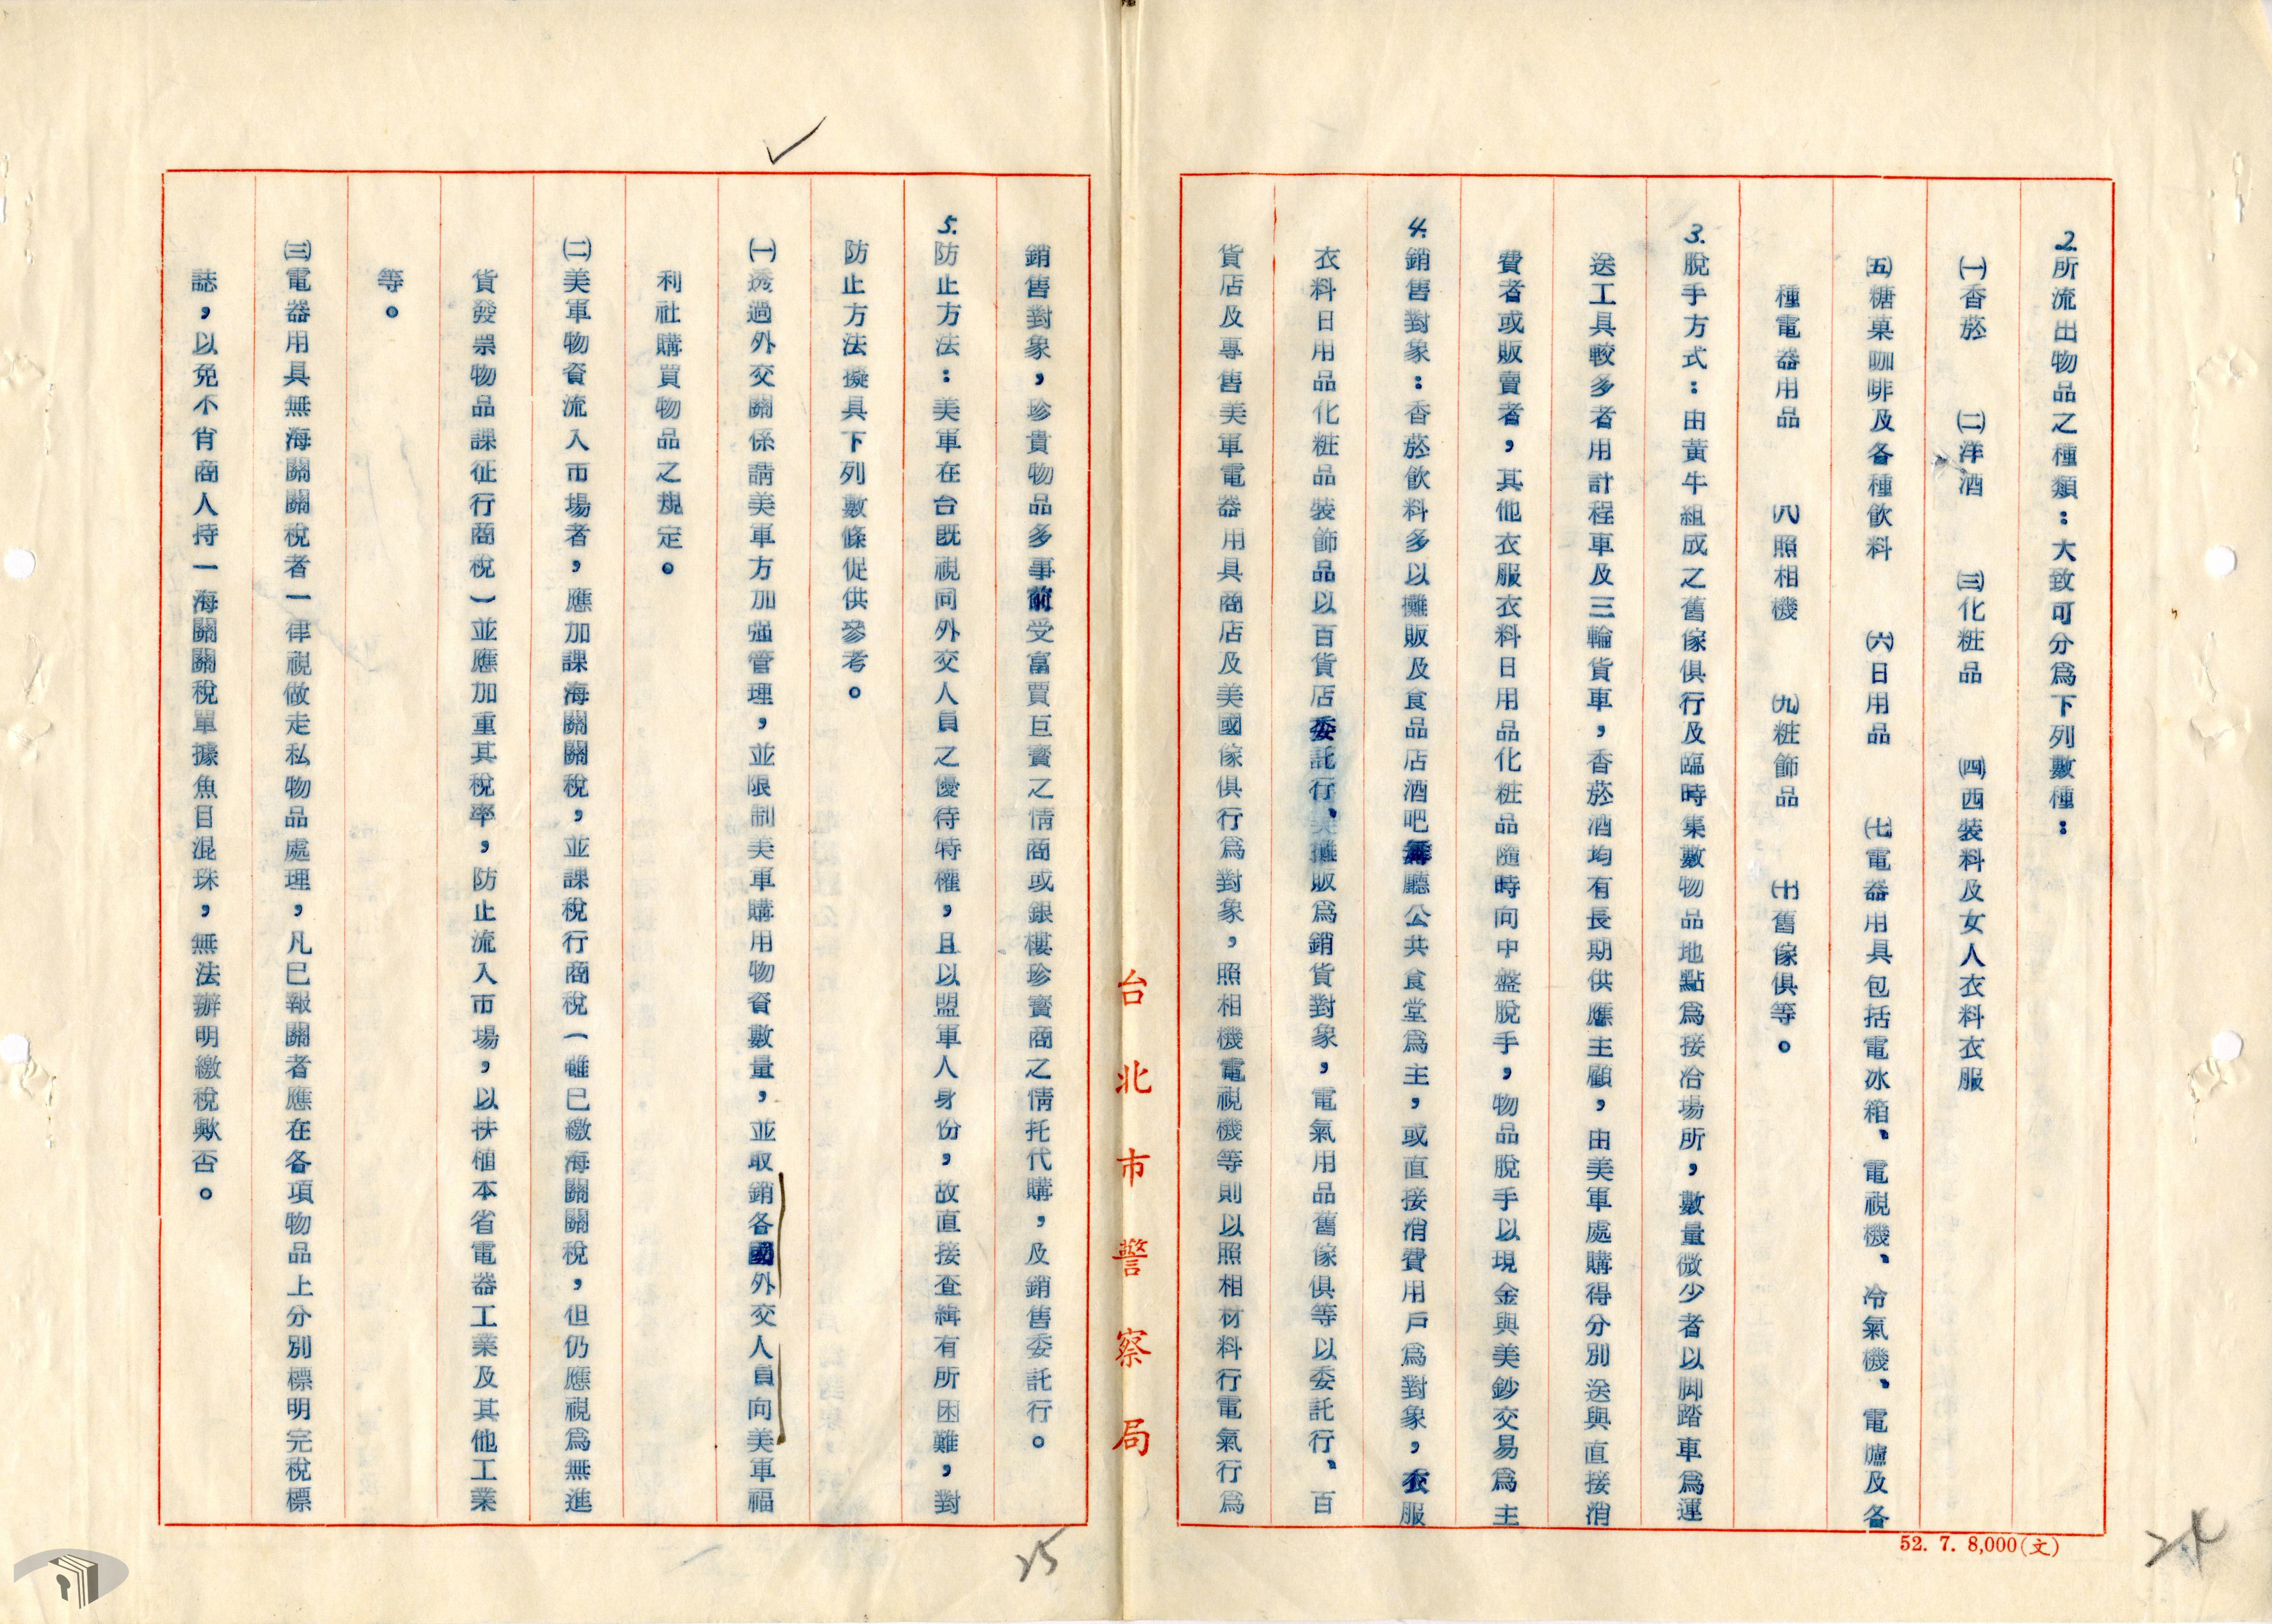 2.所流出物品之種類：大致可分為下列數種：
㈠香菸　㈡洋酒　㈢化粧品　㈣西裝料及女人衣料衣服
㈤糖菓咖啡及各種飲料　㈥日用品　㈦電器用具包括電冰箱、電視機、冷氣機、電爐及各
種電器用品　㈧照相機　㈨粧飾品　㈩舊傢俱等。
3.脫手方式：由黃牛組成之舊傢俱行及臨時集數物品地點為接洽場所，數量微少者以脚踏車為運
送工具較多者用計程車及三輪貨車，香菸酒均有長期供應主顧，由美軍處購得分別送與直接消
費者或販賣者，其他衣服衣料日用品化粧品隨時向中盤脫手，物品脫手以現金與美鈔交易為主
4.銷售對象：香菸飲料多以攤販及食品店酒吧舞廳公共食堂為主，或直接消費用戶為對象，衣服
衣料日用品化粧品裝飾品以百貨店委託行、攤販為銷貨對象，電氣用品舊傢俱等以委託行、百
貨店及專售美軍電器用具商店及美國傢俱行為對象，照相機電視機等則以照相材料行電氣行為
台北市警察局
52. 7. 8,000(文)
24
銷售對象，珍貴物品多事前受富賈巨賓之情商或銀樓珍寶商之情托代購，及銷售委託行。
5.防止方法：美軍在台既視同外交人員之優待特權，且以盟軍人身份，故直接查緝有所困難，對
防止方法擬具下列數條促供參考。
㈠透過外交關係請美軍方加强管理，並限制美軍購用物資數量，並取銷各國外交人員向美軍福
利社購買物品之規定。
㈡美軍物資流入市場者，應加課海關關稅，並課稅行商稅（雖已繳海關關稅，但仍應視為無進
貨發票物品課征行商稅）並應加重其稅率，防止流入市場，以扶植本省電器工業及其他工業
等。
㈢電器用具無海關關稅者一律視做走私物品處理，凡已報關者應在各項物品上分別標明完稅標
誌，以免不肖商人持一海關關稅單據魚目混珠，無法辦明繳稅歟否。
25